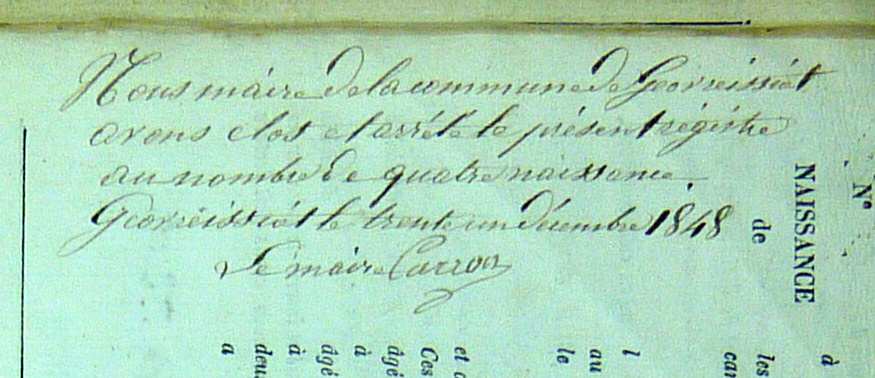 Nous maire de la commune de Georreissiat
avons clos et arrêté le présent régistre
au nombre de quatre naissance
Georreissiat le trente un décembre 1848
Le maire Carron
N°
NAISSANCE
de
à
les
car
l
au
le
et
Ces
âgé
à
âgé
à
deu
a